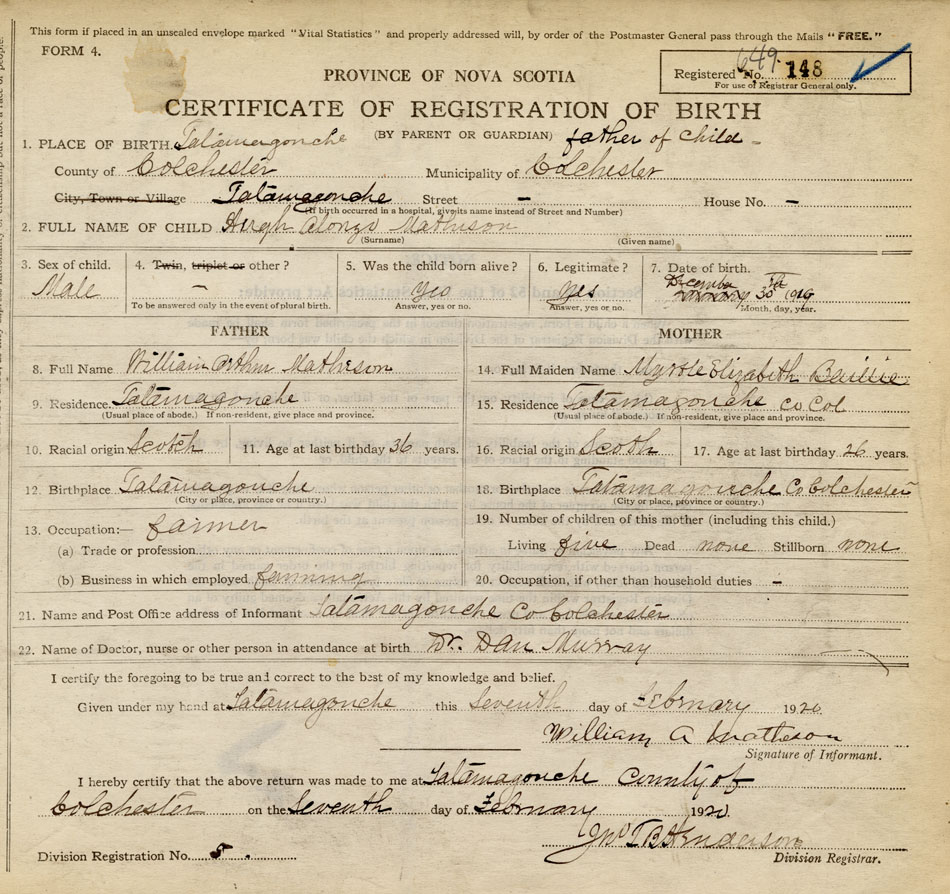 This form if placed in an unsealed envelope marked "Vital Statistics" and properly addressed will, by order of the Postmaster General pass through the Mails "FREE."
FORM 4.
649
Registered No. 148
For use of Registrar General only.
PROVINCE OF NOVA SCOTIA
CERTIFICATE OF REGISTRATION OF BIRTH
(BY PARENT OR GUARDIAN) father of child
1. PLACE OF BIRTH. Tatamagouche
County of Colchester Municipality of Colchester
City, Town or Village Tatamagouche Street – House No. –
(If birth occurred in a hospital, give its name instead of Street and Number)
2. FULL NAME OF CHILD Hugh Alonzo Matheson
(Surname) (Given name)
3. Sex of child. Male
4. Twin, triplet or other? –
To be answered only in the event of plural birth.
5. Was the child born alive? yes
Answer, yes or no.
6. Legitimate? yes
Answer, yes or no.
7. Date of birth. December 30th 1919
Month, day, year.
FATHER
8. Full Name William Arthur Matheson
9. Residence. Tatamagouche
(Usual place of abode.) If non-resident, give place and province.
10. Racial origin Scotch 11. Age at last birthday 36 years.
12. Birthplace Tatamagouche
(City or place, province or country.)
13. Occupation:— farmer
(a) Trade or profession
(b) Business in which employed farming
MOTHER
14. Full Maiden Name Myrtle Elizabeth Baillie
15. Residence Tatamagouche co Col
(Usual place of abode.) If non-resident, give place and province.
16. Racial origin Scoth 17. Age at last birthday 26 years.
18. Birthplace Tatamagouche Co Colchester
(City or place, province or country.)
19. Number of children of this mother (including this child.)
Living five Dead none Stillborn none
20. Occupation, if other than household duties –
21. Name and Post Office address of Informant Tatamagouche Co Colchester
22. Name of Doctor, nurse or other person in attendance at birth Dr. Dan Murray
I certify the foregoing to be true and correct to the best of my knowledge and belief.
Given under my hand at Tatamagouche this Seventh day of February 1920
William A Matheson
Signature of Informant.
I hereby certify that the above return was made to me at Tatamagouche County of
Colchester on the Seventh day of February 1920
Division Registration No. 5.
Division Registrar.